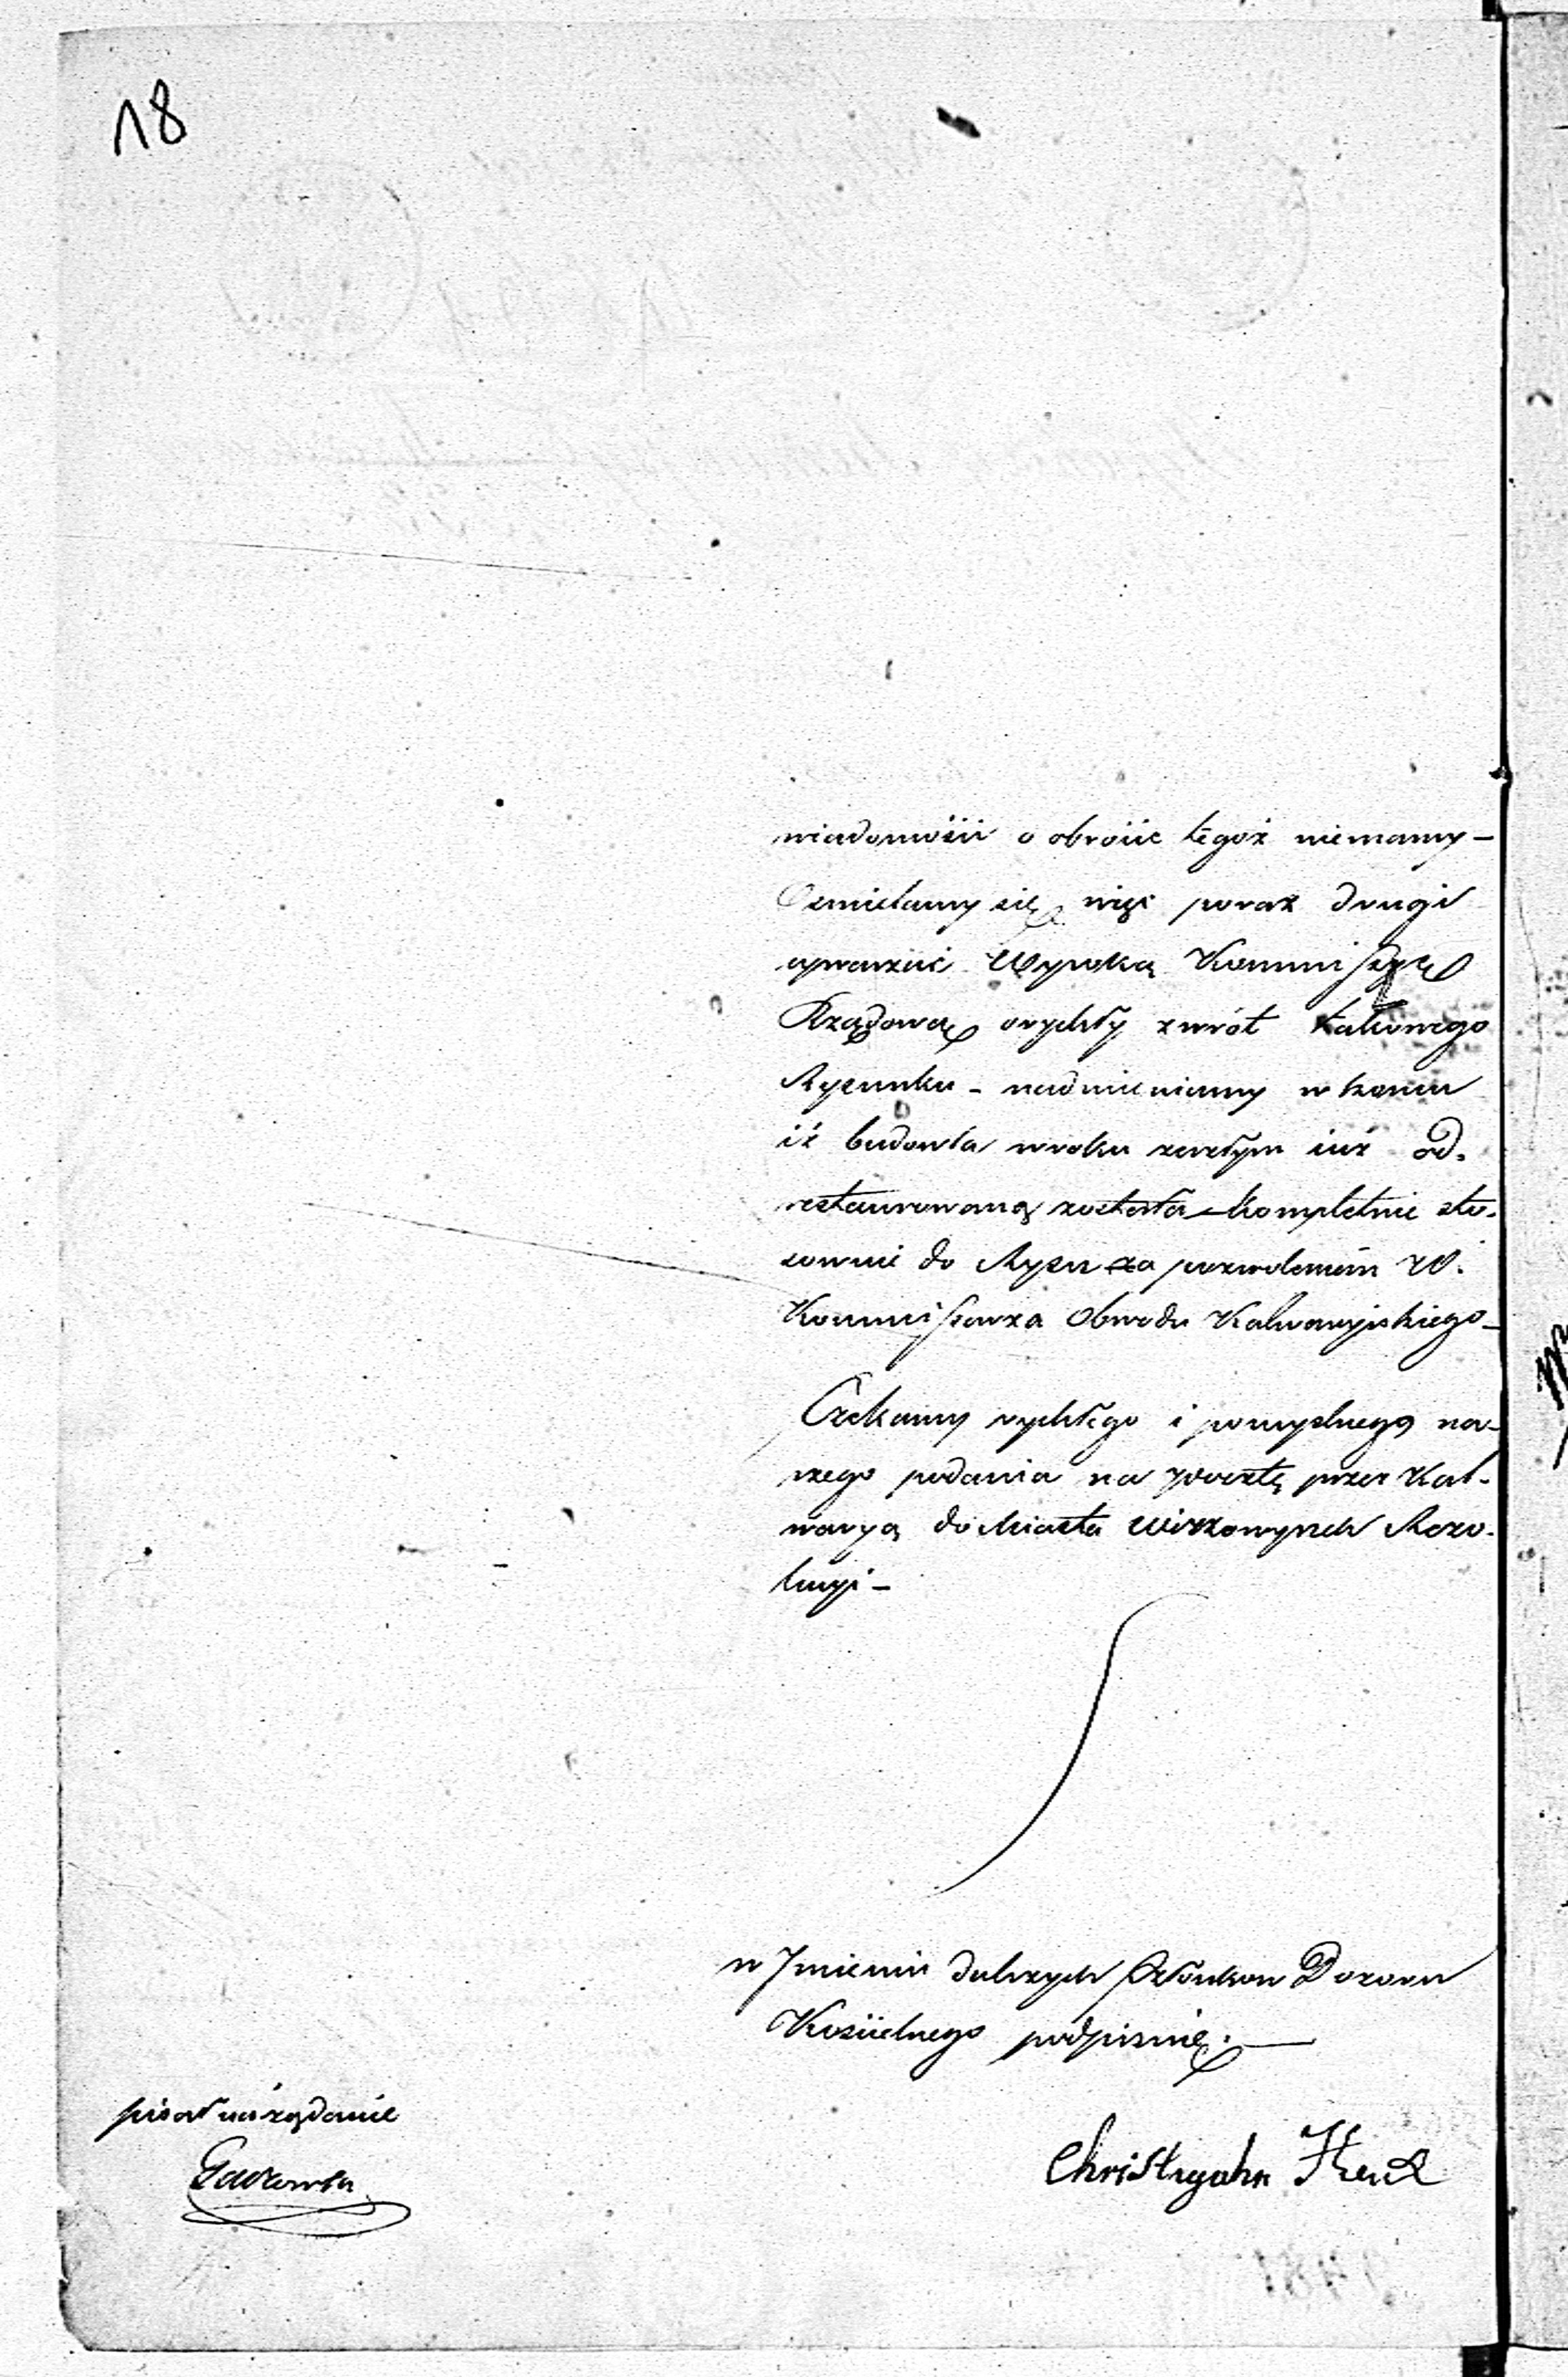 18
wiadomości o obrocie tegoż niemamy –
Osmielamy się więc poraz drugi
upraszać Wysoką Kommissyę
Rządową orychły zwrót takowego
Rysunku – nadmieniamy w koncu
iż budowla wroku zeszłym iuż od.
restaurowaną została kompletnie sto.
sownie do Rysu za pozwoleniem W.
Kommissarza Obwodu Kalwaryiskiego –
Czekamy rychłego i pomyslnego na-
szego podania na pocztę przez Kal-
waryą do Miasta Wisztynych Rezo.
lucyi –
w Jmieniu dalszych Członkow Dozoru
Koscielnego podpisuię. —
pisał na żądanie
Christyahn